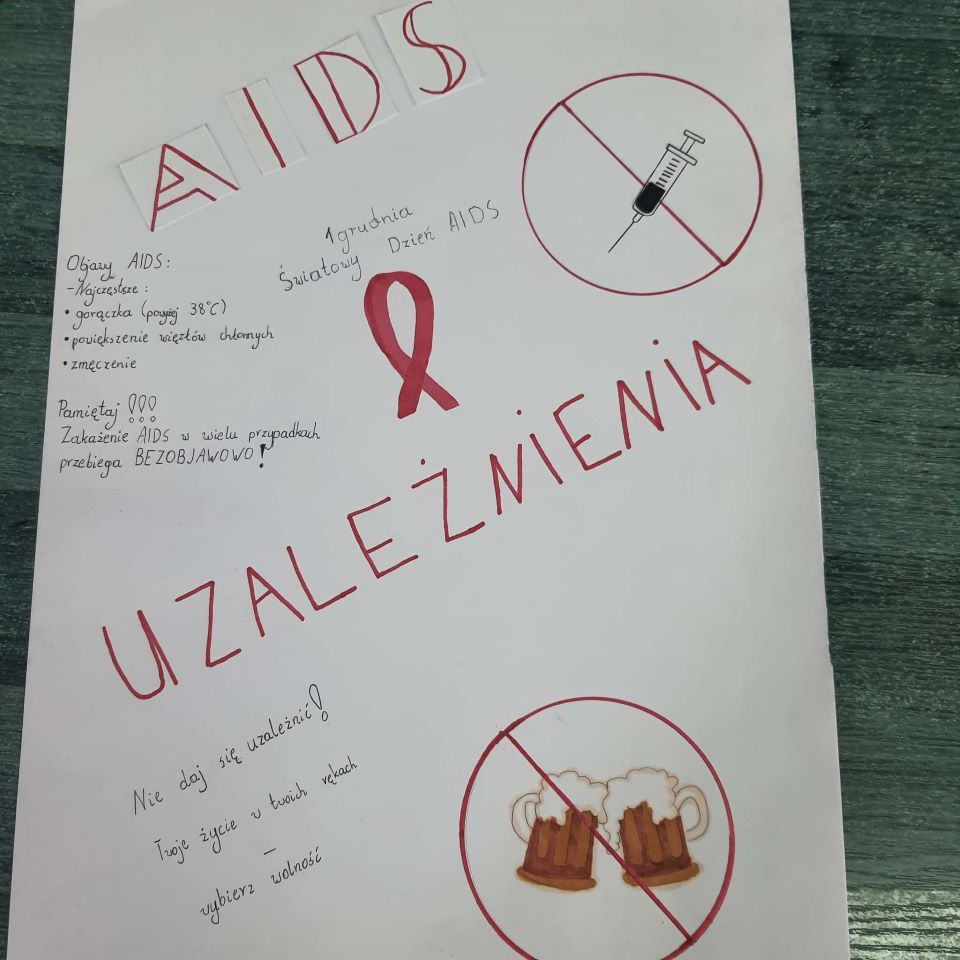 AIDS
1 grudnia
Światowy Dzień AIDS
Objawy AIDS:
- Najczęstsze:
• gorączka (powyżej 38°C)
• powiększenie węzłów chłonnych
• zmęczenie
Pamiętaj !!!
Zakażenie AIDS w wielu przypadkach
przebiega BEZOBJAWOWO!
UZALEŻNIENIA
Nie daj się uzależnić!
Twoje życie w twoich rękach
–
wybierz wolność